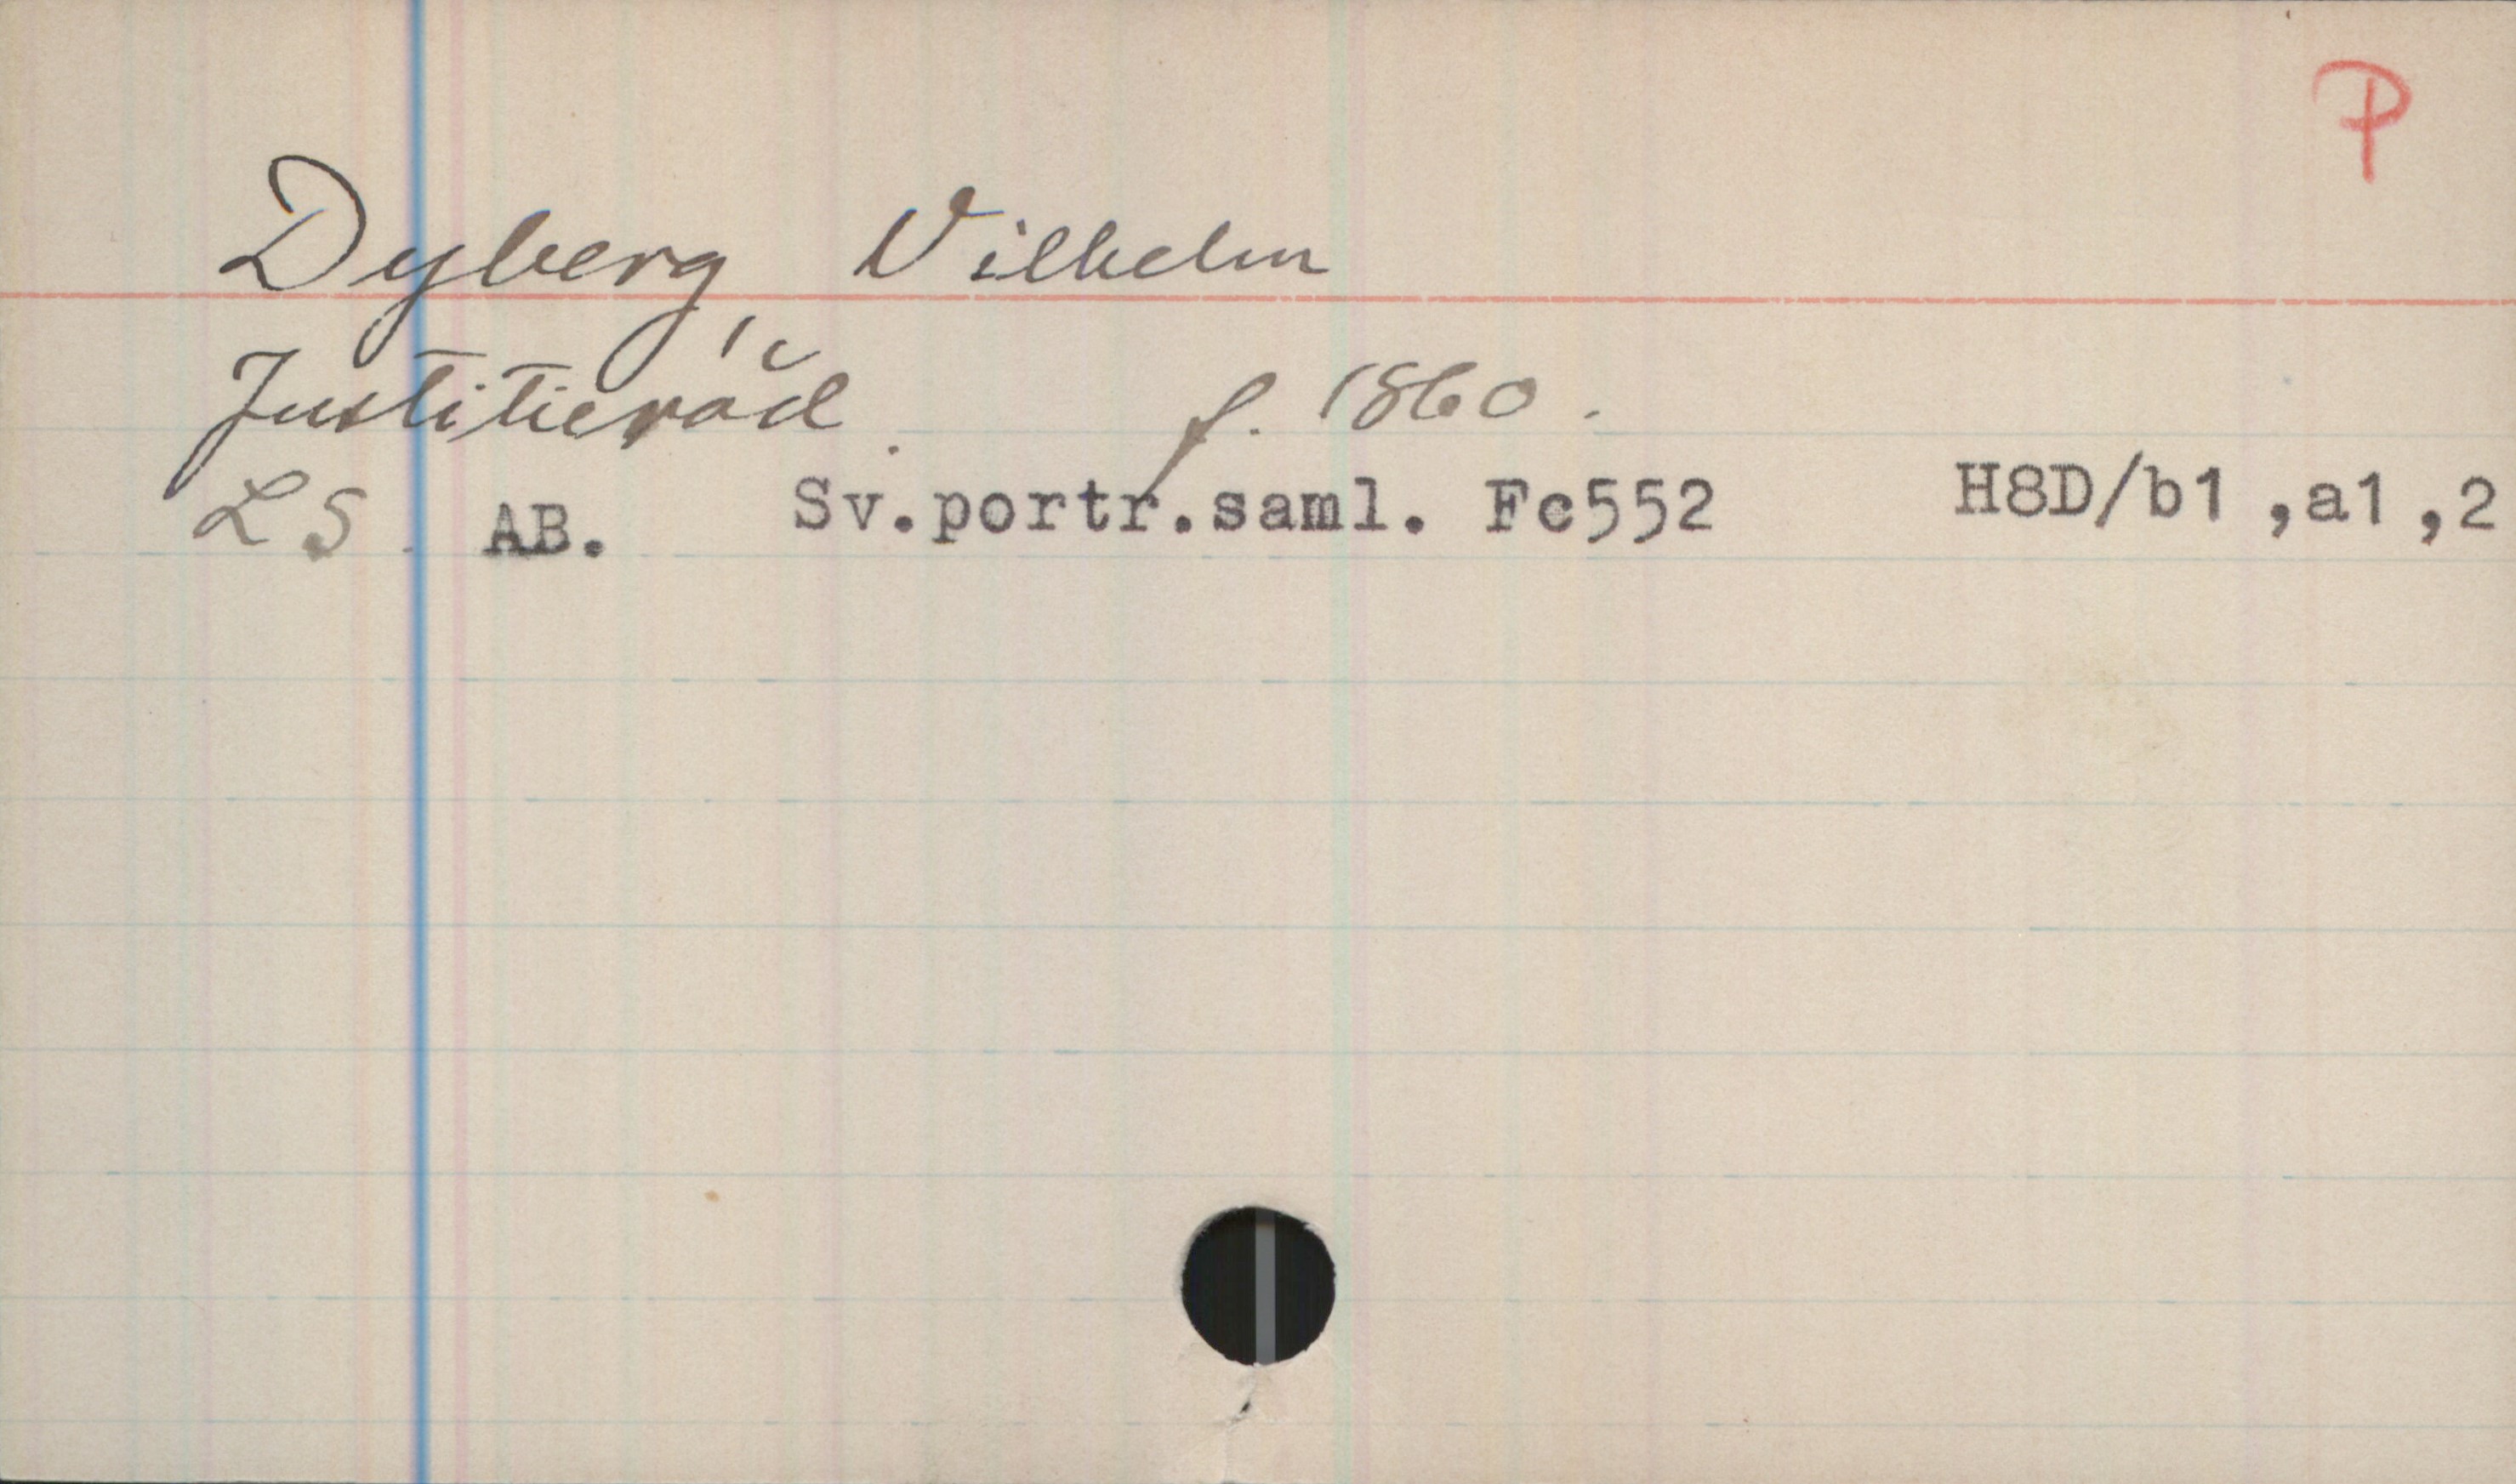 P
Dyberg Vilhelm
Justitieråd. f. 1860.
LS. AB. Sv.portr.saml. Fc552 H8D/b1 ,a1 ,2